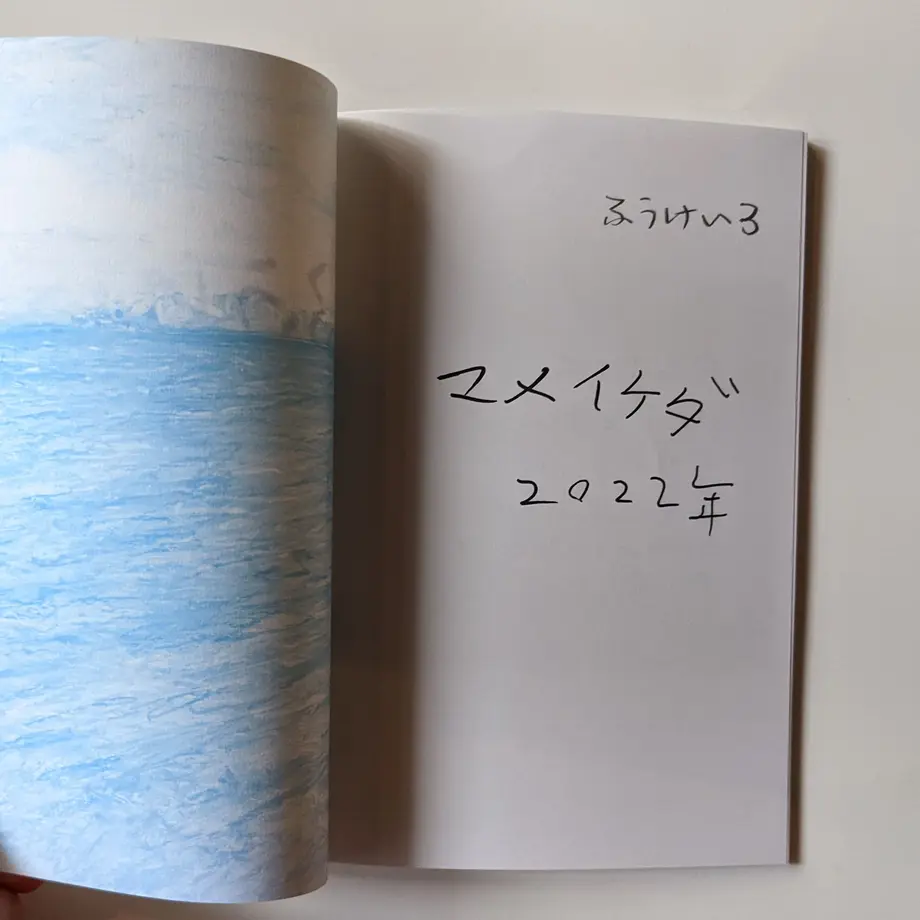 ふうけいろ
マメイケダ
2022年